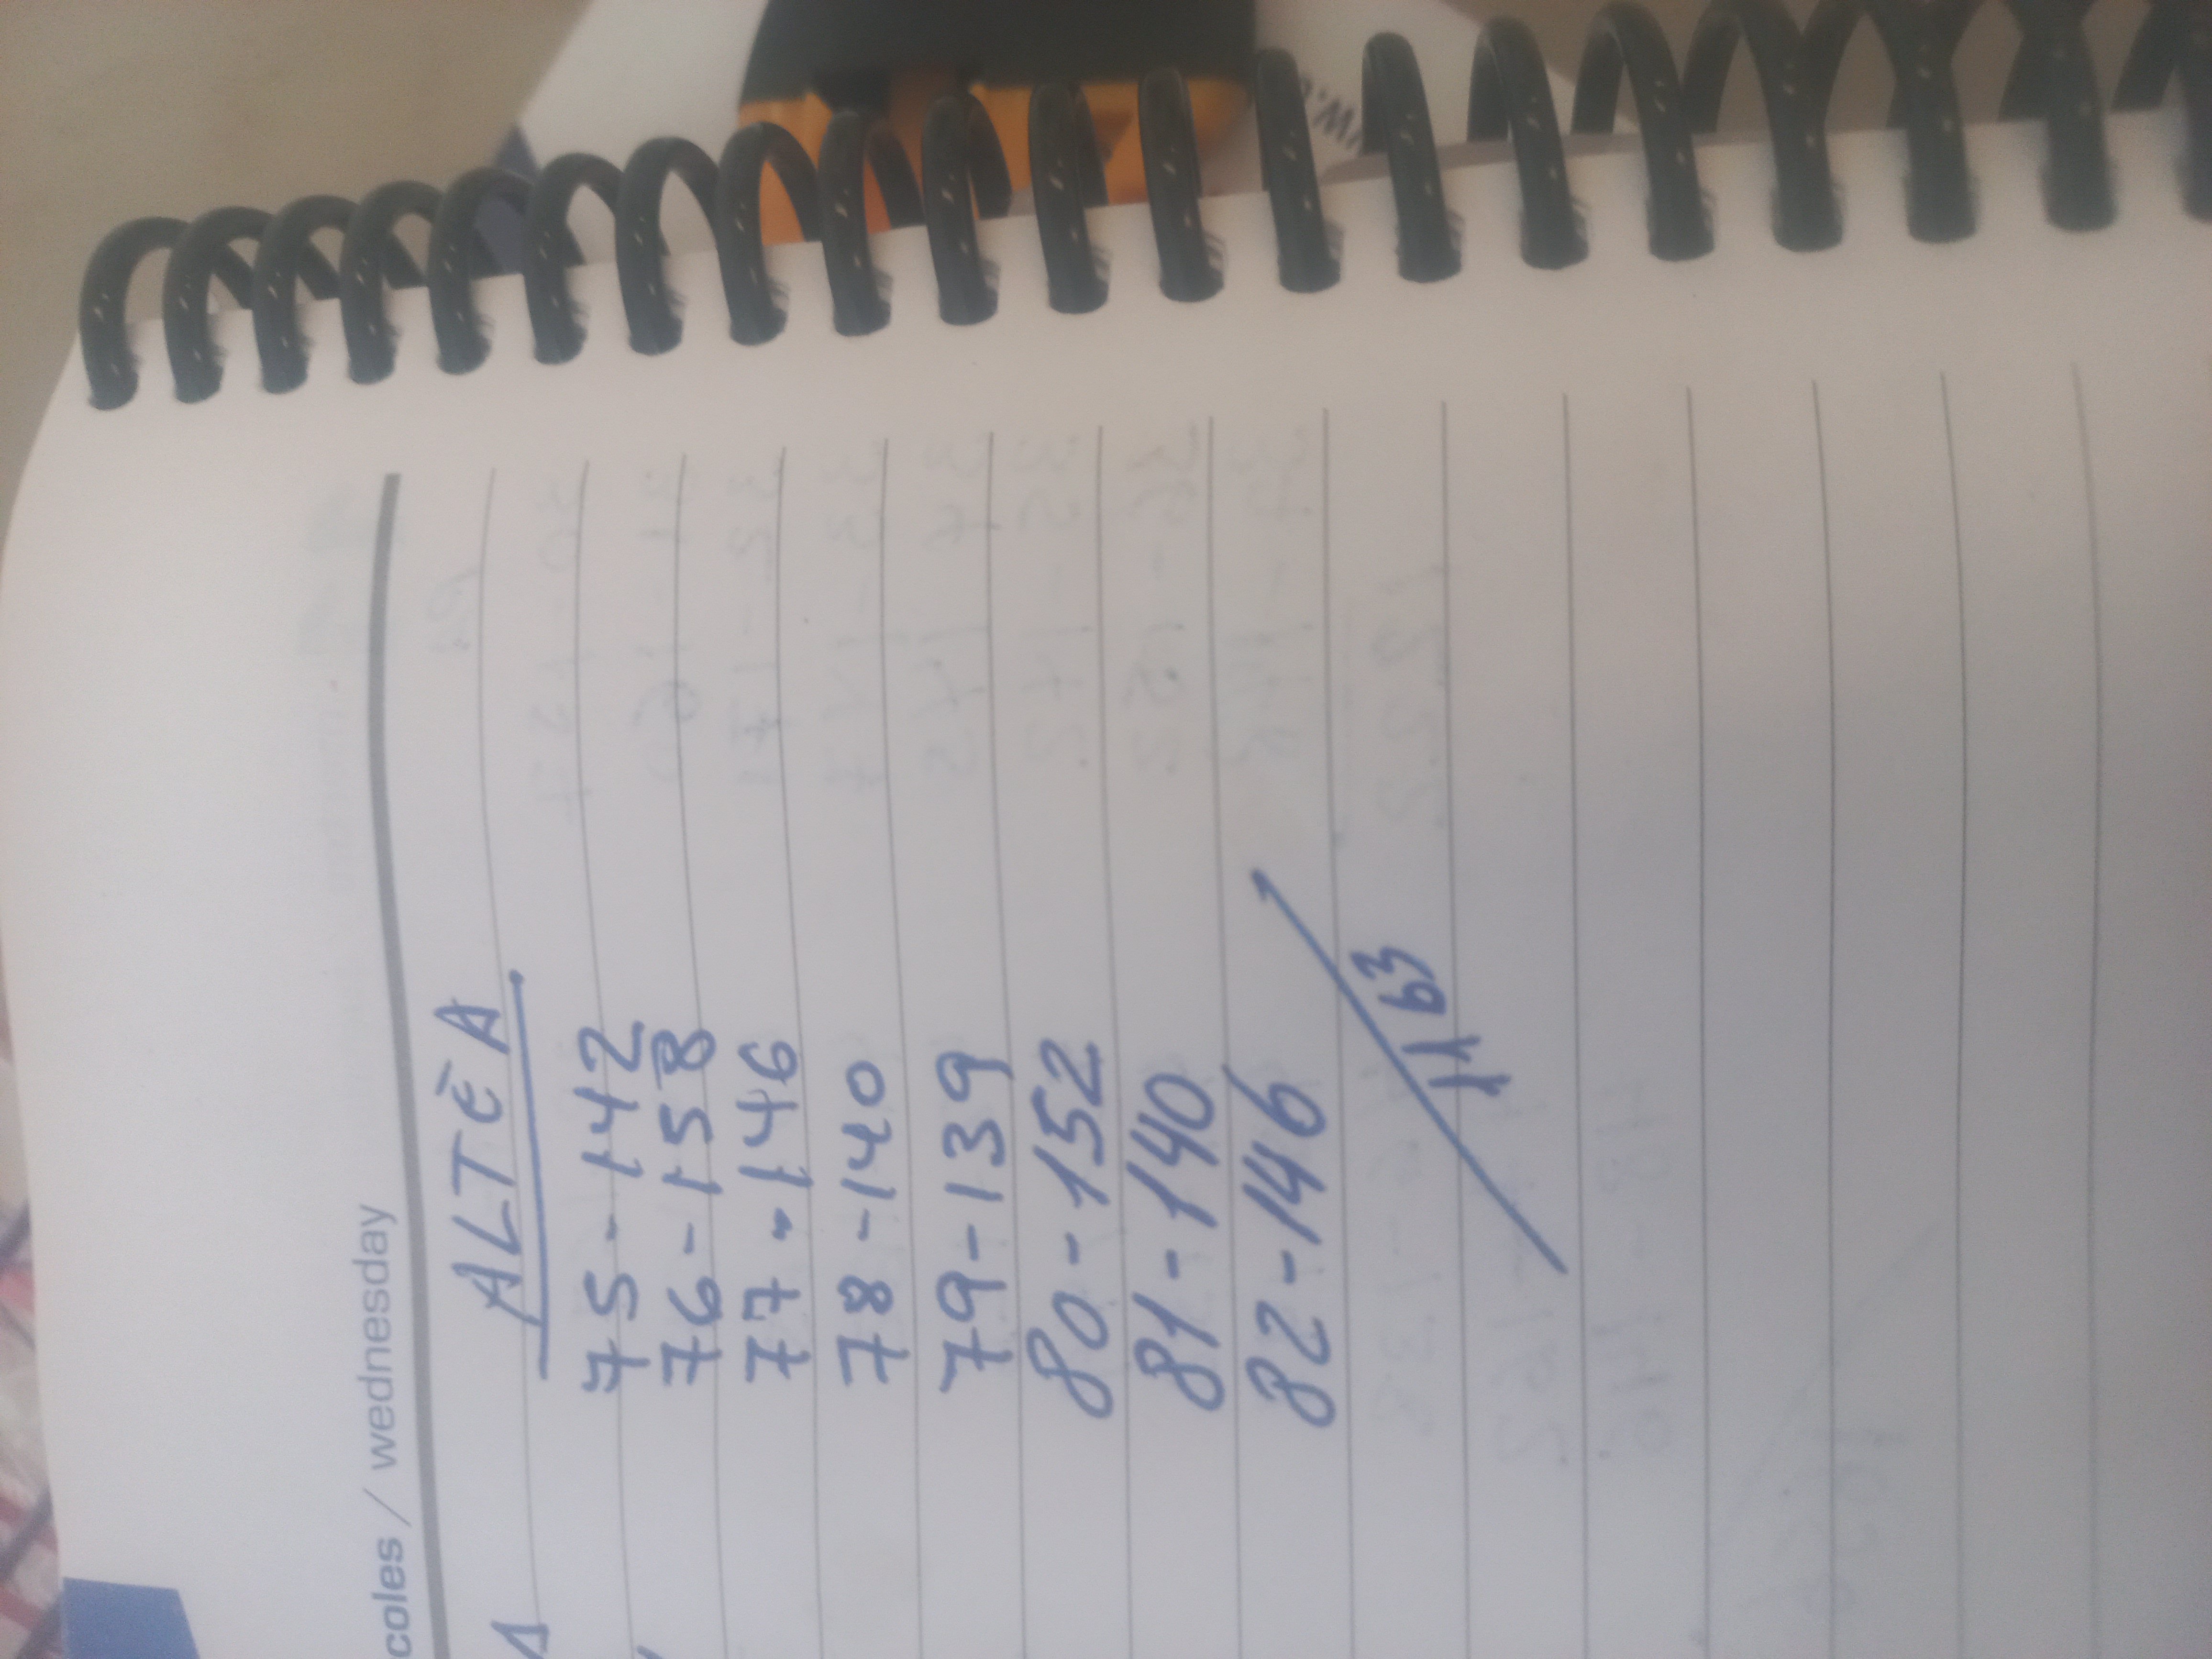 coles / wednesday
ALTÉA
75 - 142
76 - 158
77 - 146
78 - 140
79 - 139
80 - 152
81 - 140
82 - 146
1163